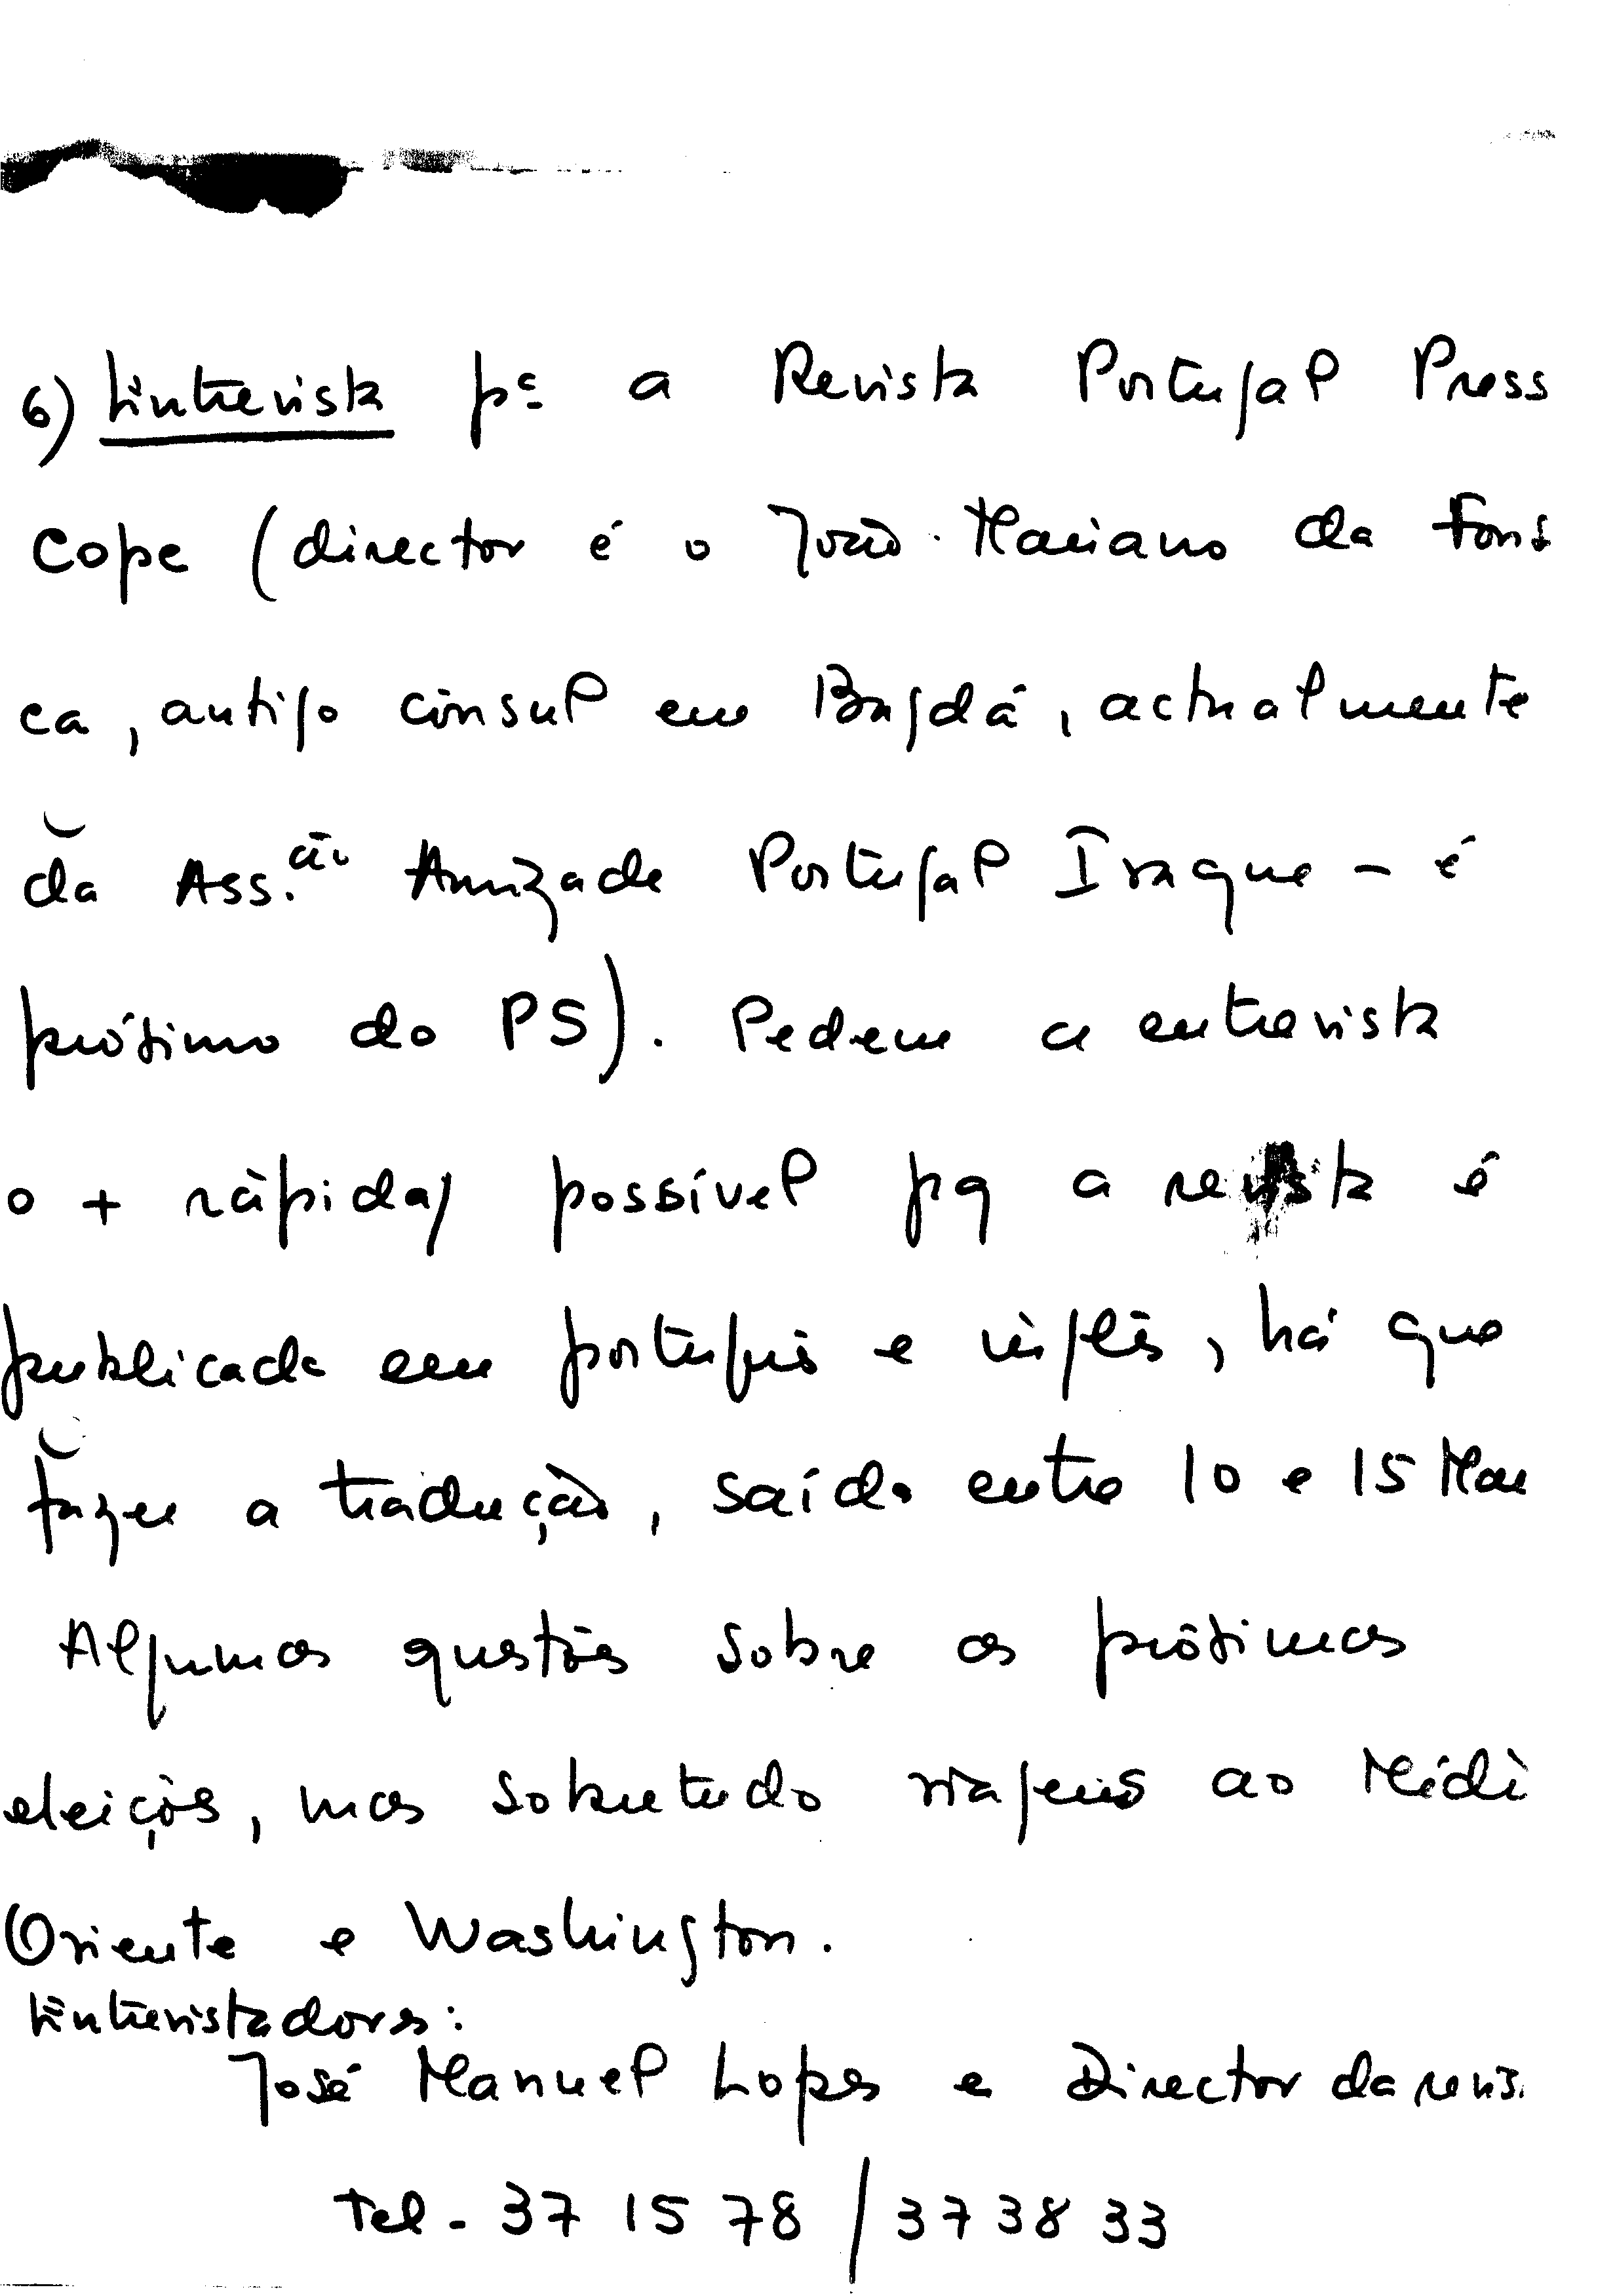 6) Entrevista pª a Revista Portugal Press
Cope (director é o João Mariano da Fons
ca, antigo cônsul em Bagdá, actualmente
da Ass.ão Amizade Portugal Iraque - é
próximo do PS). Pedem a entrevista
o + ràpida/ possível pq a revista é
publicada em português e inglês, há que
fazer a tradução, saída entre 10 e 15 Mar
Algumas questões sobre as próximas
eleições, mas sobretudo viagens ao Médi
Oriente e Washington.
Entrevistadores:
José Manuel Lopes e Director da revis.
Tel - 37 15 78 / 37 38 33